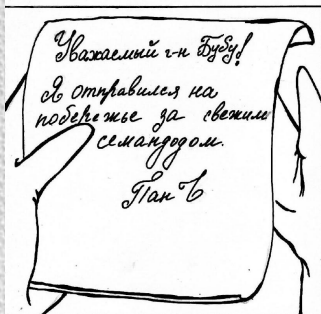 Уважаемый г-н Бубу!
Я отправился на
побережье за свежим
семандодом.
Пан Ъ